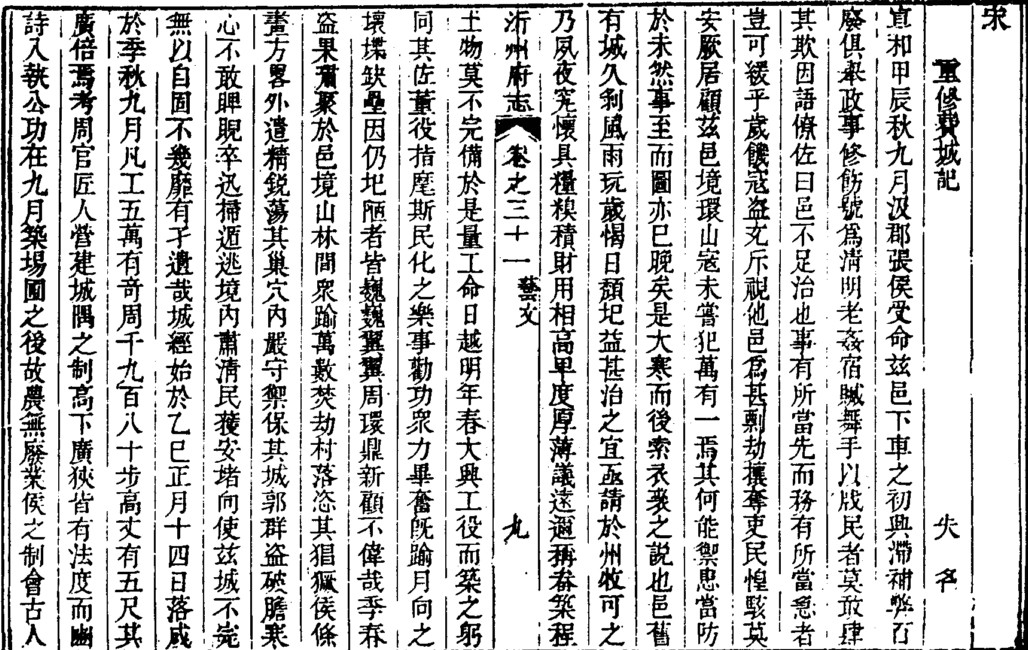 宋
重修費城記 失名
宣和甲辰秋九月汲郡張侯受命兹邑下車之初興滯補弊百
廢俱舉政事修飭號爲淸明老姦宿贓舞手以戕民者莫敢肆
其欺因語僚佐曰邑不足治也事有所當先而務有所當急者
豈可緩乎歲饑冦盜充斥視他邑爲甚剽劫攘奪吏民惶駭莫
安厥居顧兹邑境環山冦未嘗犯萬有一焉其何能禦患當防
於未然事至而圖亦已晚矣是大寒而後索衣裘之説也邑舊
有城久剥風雨玩歲愒日頽圮益甚治之宜亟請於州牧可之
乃夙夜究懷具糧糗積財用相高卑度厚薄議遠邇稱畚築程
沂州府志 卷之三十一 藝文 九
土物莫不完備於是量工命日越明年春大興工役而築之躬
同其佐董役指麾斯民化之樂事勸功衆力畢奮旣踰月向之
壞堞缺壘因仍圮陋者皆巍巍翼翼周環鼎新顧不偉哉季春
盜果嘯聚於邑境山林間衆踰萬數焚劫村落恣其猖獗侯條
畫方畧外遣精鋭蕩其巢穴内嚴守禦保其城郭群盜破膽寒
心不敢睥睨卒迅掃遁逃境内肅清民獲安堵向使兹城不完
無以自固不幾靡有孑遺哉城經始於乙巳正月十四日落成
於季秋九月凡工五萬有奇周千九百八十步高丈有五尺其
廣倍焉考周官匠人營建城隅之制高下廣狹皆有法度而豳
詩入執公功在九月築場圃之後故農無廢業侯之制會古人